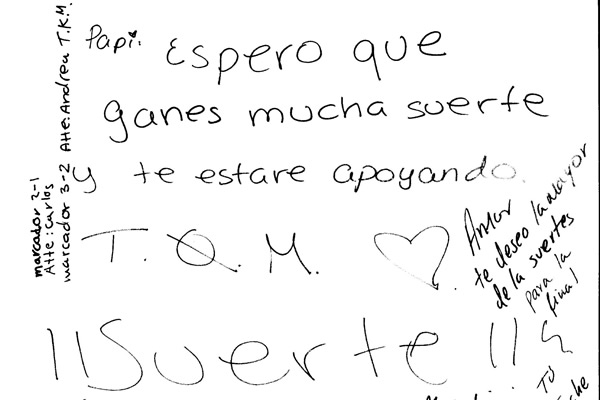 Papi:
Espero que
ganes mucha suerte
y te estare apoyando.
T. Q. M.
¡¡Suerte!!
marcador 2-1
Atte: Carlos
marcador 3-2 Atte: Andrea T.K.M.
Amor
te deseo la mayor
de la suertes
para la
final
Tu